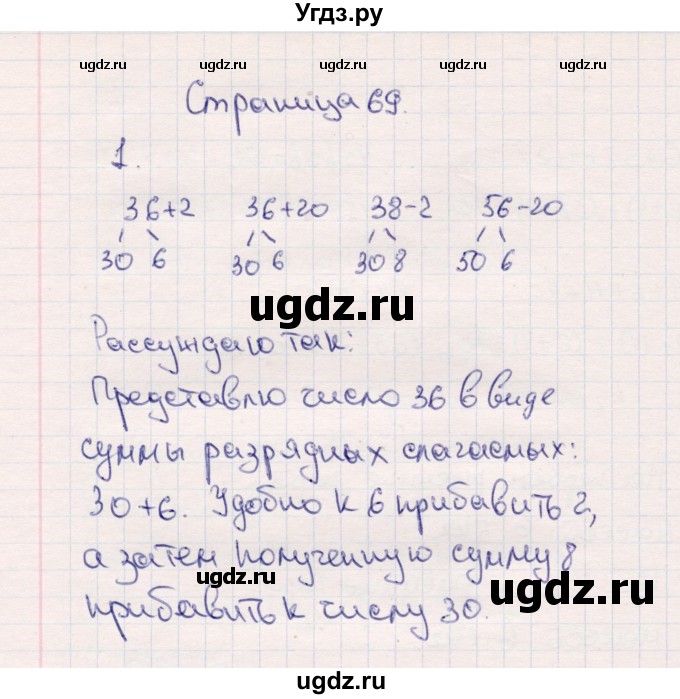 Угдз.ру
ugdz.ru ugdz.ru ugdz.ru ugdz.ru
Страница 69.
1.
36+2 36+20 38-2 56-20
30 6 30 6 30 8 50 6
ugdz.ru
Рассуждаю так:
Представлю число 36 в виде
суммы разрядных слагаемых:
30+6. Удобно к 6 прибавить 2,
а затем полученную сумму 8
ugdz.ru ugdz.ru
прибавить к числу 30.
ugdz.ru ugdz.ru ugdz.ru ugdz.ru
ugdz.ru